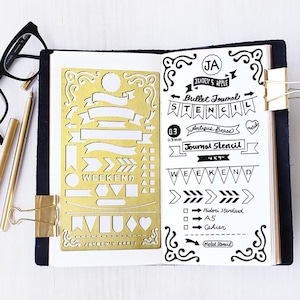 WEEKEND
JA
Bullet Journal
STENCIL
03
Antique Brass
Journal Stencil
WEEKEND
Midori Standard
A5
Cahier
Metal Stencil